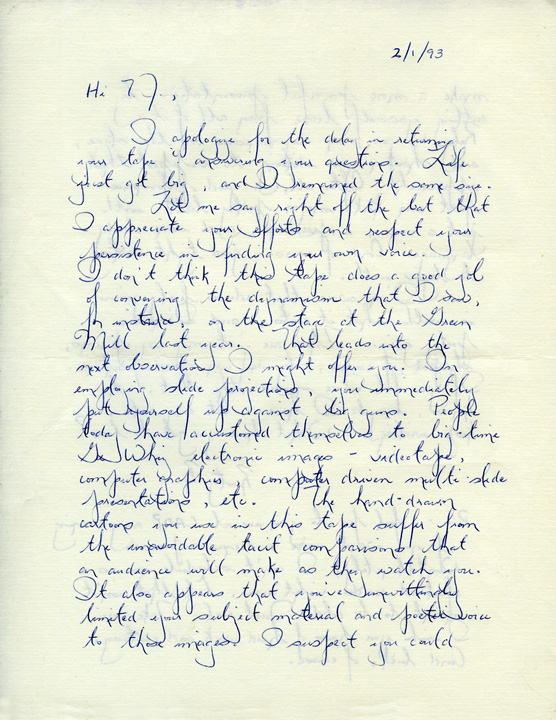 2/1/93
Hi T.J.,
I apologize for the delay in returning
your tape & answering your questions. Life
just got big, and I remained the same size.
Let me say right off the bat that
I appreciate your efforts and respect your
persistence in finding your own voice.
I don't think this tape does a good job
of conveying the dynamism that I saw,
for instance, on the stage at the Green
Mill last year. That leads into the
next observation I might offer you. In
employing slide projections, you immediately
put yourself up against big guns. People
today have accustomed themselves to big-time
Gee Whiz electronic images - videotape,
computer graphics, computer driven multi-slide
presentations, etc. The hand-drawn
cartoons you use in this tape suffer from
the unavoidable tacit comparisons that
an audience will make as they watch you.
It also appears that you've unwittingly
limited your subject material and poetic voice
to those images. I suspect you could